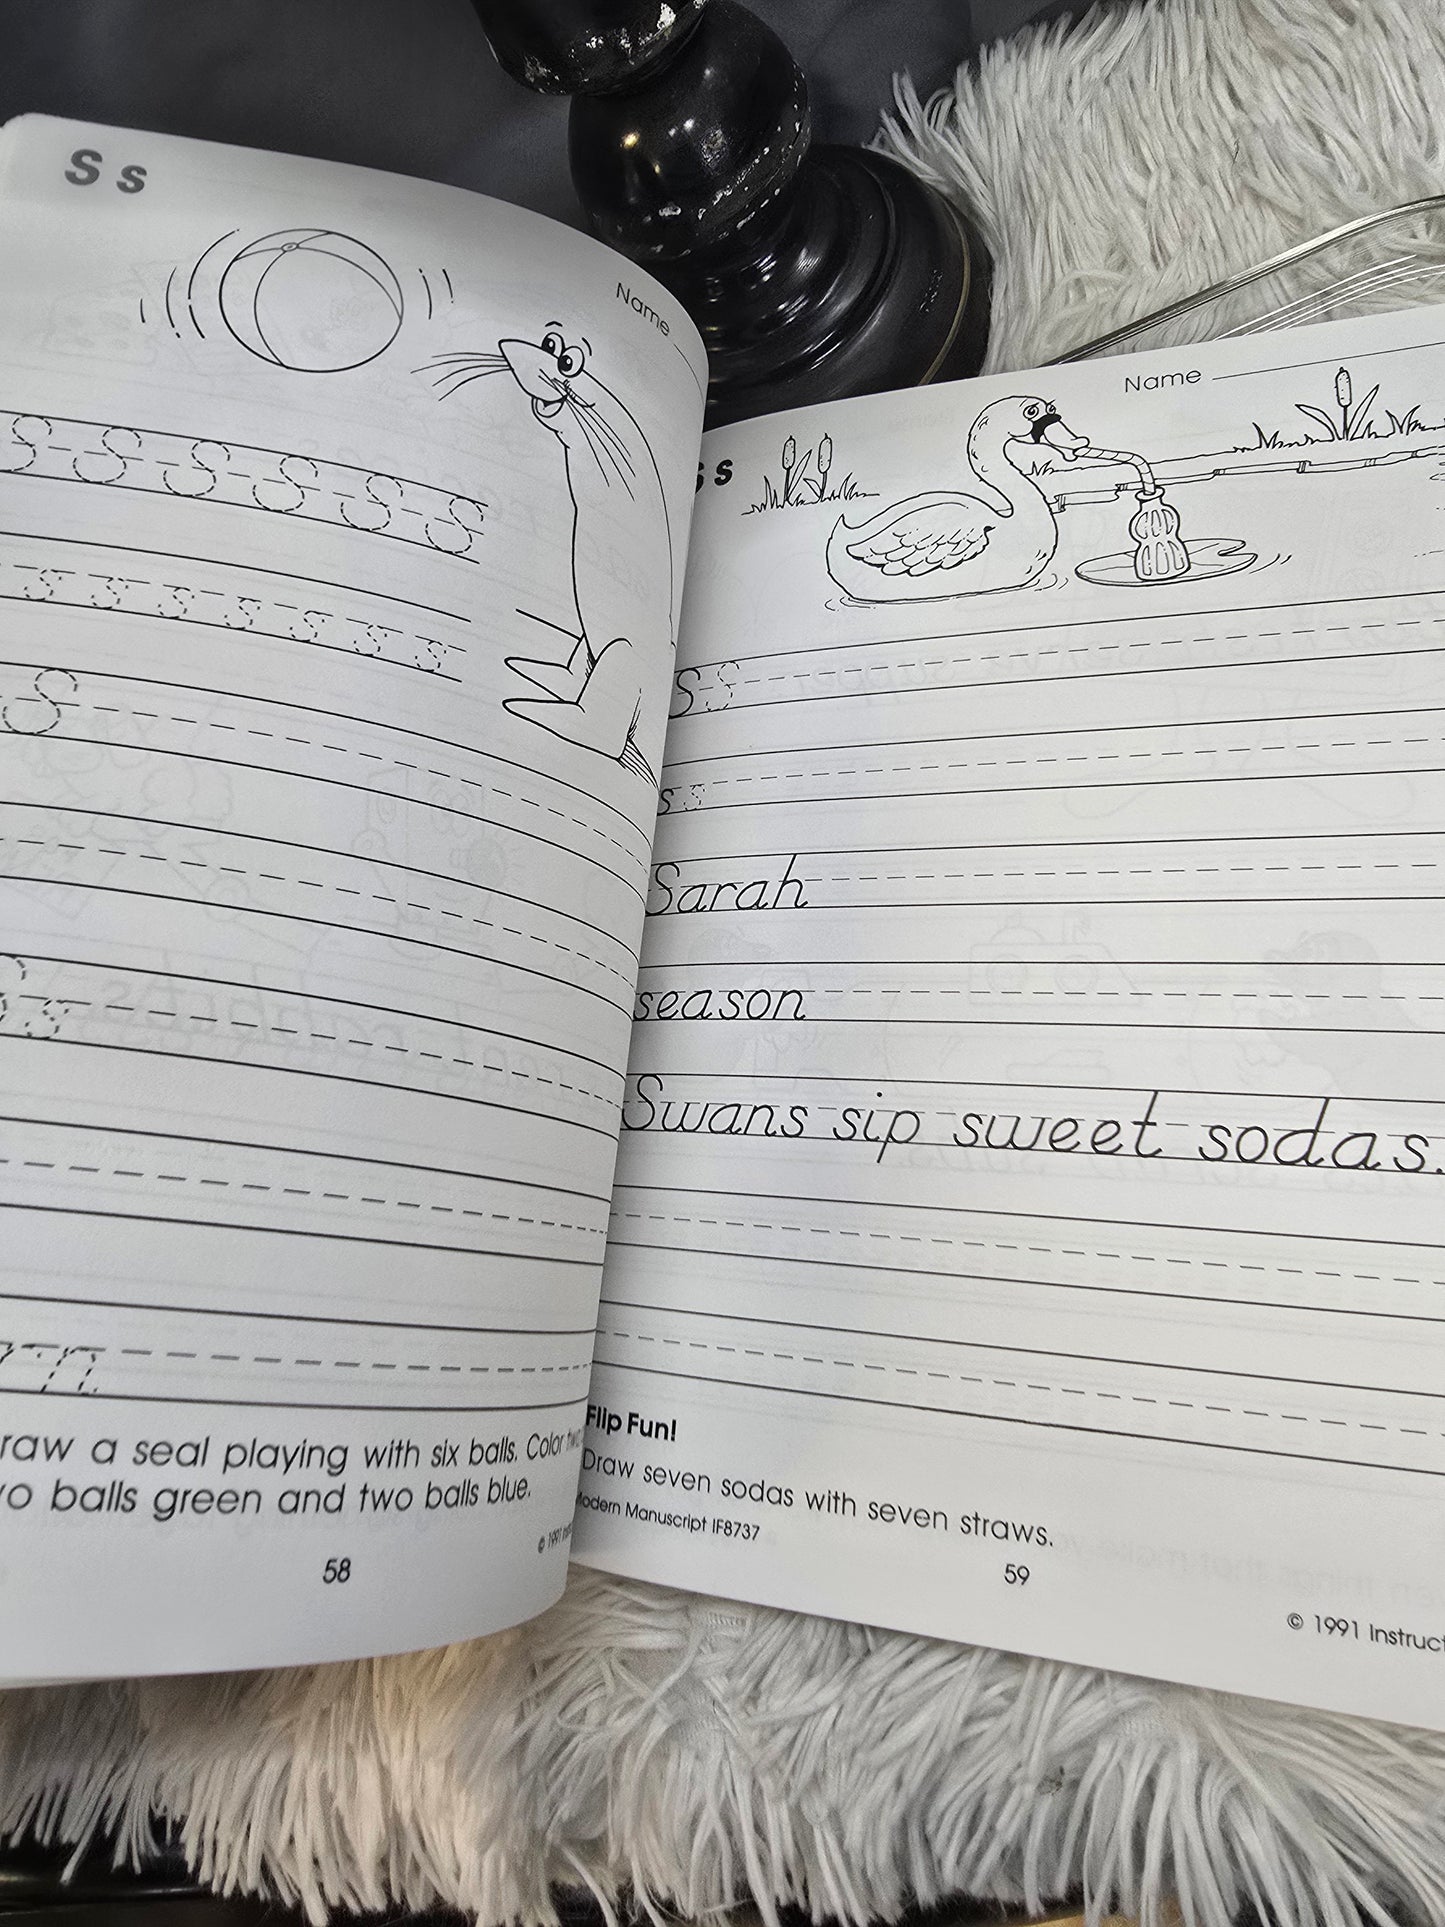 S s
Name
S S S S S S
s s s s s s s
S
S s
n
raw a seal playing with six balls. Color two
wo balls green and two balls blue.
© 1991 Instr
58
Name
S s
S S
s s
Sarah
season
Swans sip sweet sodas.
Flip Fun!
Draw seven sodas with seven straws.
Modern Manuscript IF8737
59
© 1991 Instruct